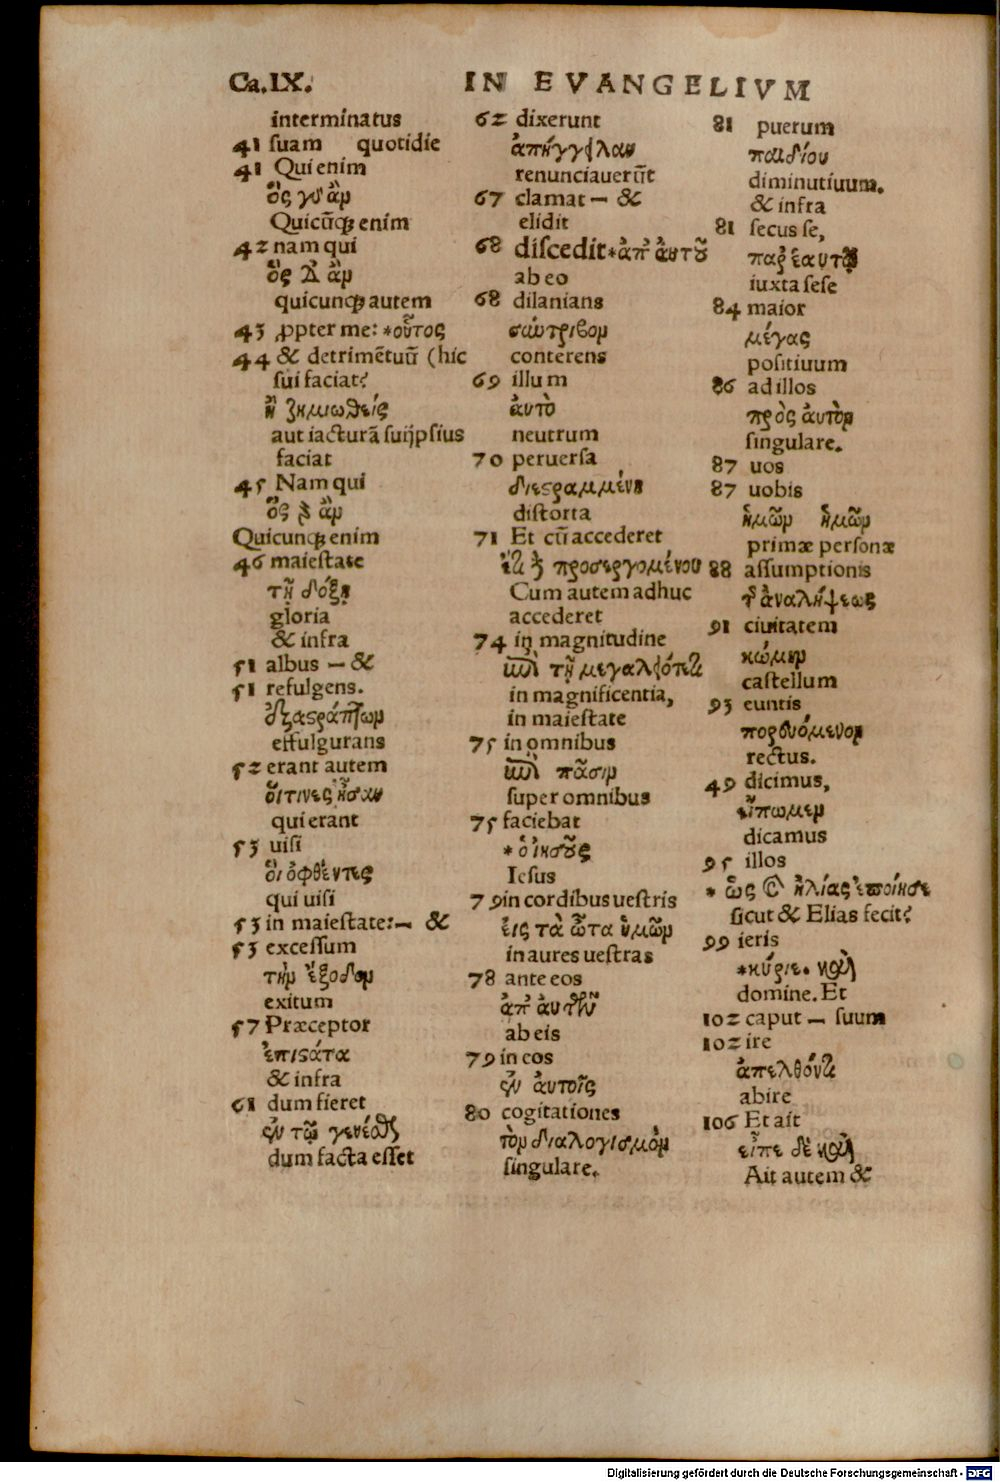 Ca.IX. IN EVANGELIVM
interminatus
41 ſuam quotidie
41 Qui enim
ὃς γὰρ ἂν
Quicūꝙ enim
42 nam qui
ὃς δ' ἂν
quicunꝙ autem
43 ꝓpter me: *οὗτος
44 & detrimētuū (hic
ſui faciat?
ἢ ζημιωθείς
aut iacturā ſuijpſius
faciat
45 Nam qui
ὃς γὰρ ἂν
Quicunꝙ enim
46 maieſtate
τῇ δόξῃ
gloria
& infra
51 albus — &
51 refulgens.
ἐξαςράπτων
effulgurans
52 erant autem
οἵτινες ἦσαν
qui erant
53 uiſi
οἳ ὀφθέντες
qui uiſi
53 in maieſtate:— &
53 exceſſum
τὴν ἔξοδον
exitum
57 Præceptor
ἐπιςάτα
& infra
61 dum fieret
ἐν τῷ γενέσθαι
dum facta eſſet
62 dixerunt
ἀπήγγειλαν
renunciauerūt
67 clamat — &
elidit
68 diſcedit*ἀπ' ἀυτοῦ
ab eo
68 dilanians
σωτριβον
conterens
69 illum
ἀυτὸ
neutrum
70 peruerſa
διεςραμμένη
diſtorta
71 Et cū accederet
ἔτι δὲ προσεργομένου
Cum autem adhuc
accederet
74 in magnitudine
ἐπὶ τῇ μεγαλειότητι
in magnificentia,
in maieſtate
75 in omnibus
ἐπὶ πᾶσιν
ſuper omnibus
75 faciebat
*ὁ ἰησοῦς
Ieſus
79 in cordibus ueſtris
εἰς τὰ ὦτα ὑμῶν
in aures ueſtras
78 ante eos
ἀπ' ἀυτῶν
ab eis
79 in eos
ἐν ἀυτοῖς
80 cogitationes
τὸν διαλογισμὸν
ſingulare.
81 puerum
παιδίου
diminutiuum.
& infra
81 ſecus ſe,
παρ' ἑαυτῷ
iuxta ſeſe
84 maior
μέγας
poſitiuum
86 ad illos
πρὸς ἀυτὸν
ſingulare.
87 uos
87 uobis
ἡμῶν ἡμῶν
primæ perſonæ
88 aſſumptionis
τῆς ἀναλήψεως
91 ciuitatem
κώμην
caſtellum
93 euntis
πορευόμενον
rectus.
49 dicimus,
εἴπωμεν
dicamus
95 illos
* ὡς καὶ ἠλίας ἐποίησε
ſicut & Elias fecit?
99 ieris
*κύριε. καὶ
domine. Et
102 caput — ſuum
102 ire
ἀπελθόντι
abire
106 Et ait
εἶπε δὲ καὶ
Ait autem &
Digitalisierung gefördert durch die Deutsche Forschungsgemeinschaft - DFG